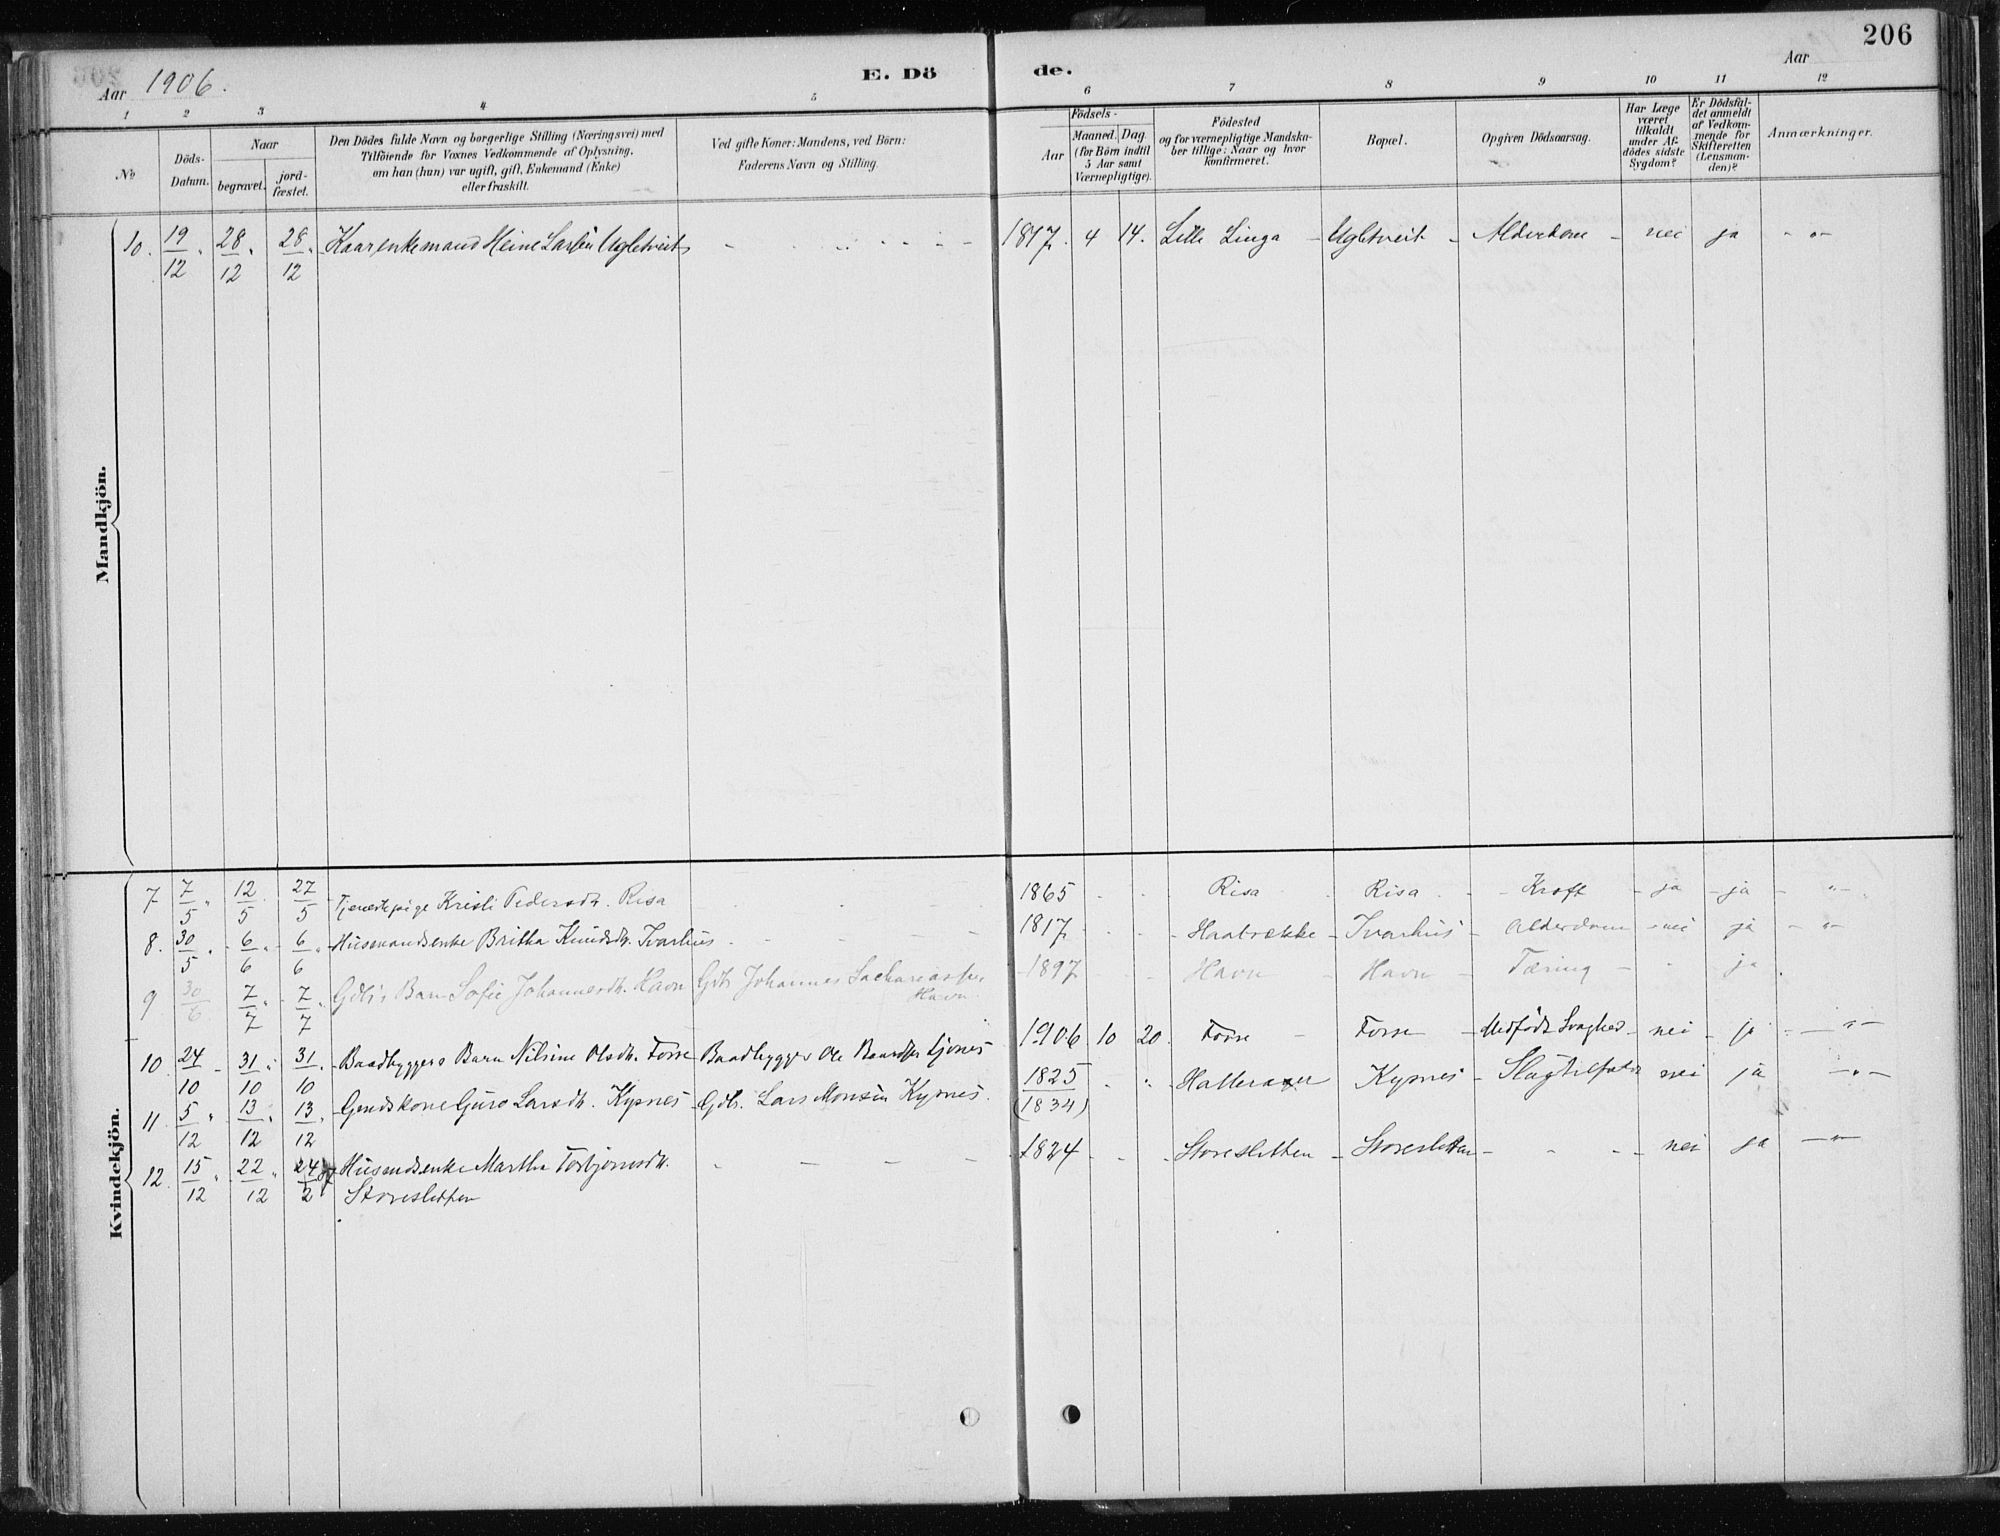 206
Aar 1906.
E. Dö
de.
Aar
1 2 3 4 5 6 7 8 9 10 11 12
No
Döds-Datum.
Naar
begravet.
jord-fæstet.
Den Dödes fulde Navn og borgerlige Stilling (Næringsvei) med
Tilföiende for Voxnes Vedkommende af Oplysning,
om han (hun) var ugift, gift, Enkemand (Enke)
eller fraskilt.
Ved gifte Koner: Mandens, ved Börn:
Faderens Navn og Stilling.
Födsels-
Aar
Maaned.
Dag.
(for Börn indtil
5 Aar samt
Værnepligtige).
Födested
og for værnepligtige Mandska-
ber tillige: Naar og hvor
konfirmeret.
Bopæl.
Opgiven Dödsaarsag.
Har Læge
været
tilkaldt
under Af-
dödes sidste
Sygdom?
Er Dödsfal-
det anmeldt
af Vedkom-
mende for
Skifteretten
(Lensman-
den)?
Anmærkninger.
Mandkjön.
10. 19/12 28/12 28/12 Kaarenkemand Heine Larsen Ugletveit 1817. 4 14. Lille Linga Ugletveit Alderdom nei ja - " -
Kvindekjön.
7 7/5 12/5 27/5 Tjenestepige Kristi Pedersdtr. Risa 1865 Risa Risa Kræft ja ja - " -
8. 30/5 6/6 6/6 Husmandsenke Britha Knudsdtr. Ivarhus 1817 Haabrekke Ivarhus Alderdom nei ja - " -
9 30/6 7/7 7/7 Gdbrs Barn Sofie Johannesdtr. Havn Gdbr Johannes Sachariassen
Havn. 1897 Havn Havn Tæring - ja
10 24/10 31/10 31/10 Baadbyggers Barn Nilsine Olsdtr. Forre Baadbygger Ole Baardsen Ljones 1906 10 20 Forre Forre Medfødt Svaghed nei ja - " -
11 5/12 13/12 13/12 Gmdskone Guro Larsdtr. Kypnes Gdbr. Lars Monsen Kypnes. 1825
(1834) Halleraker Kypnes Slagtilfælde nei ja - " -
12. 15/12 22/12 24/2 07 Husmdsenke Martha Torbjørnsdtr.
Storesletten 1824 Storesletten Storesletten nei ja - " -